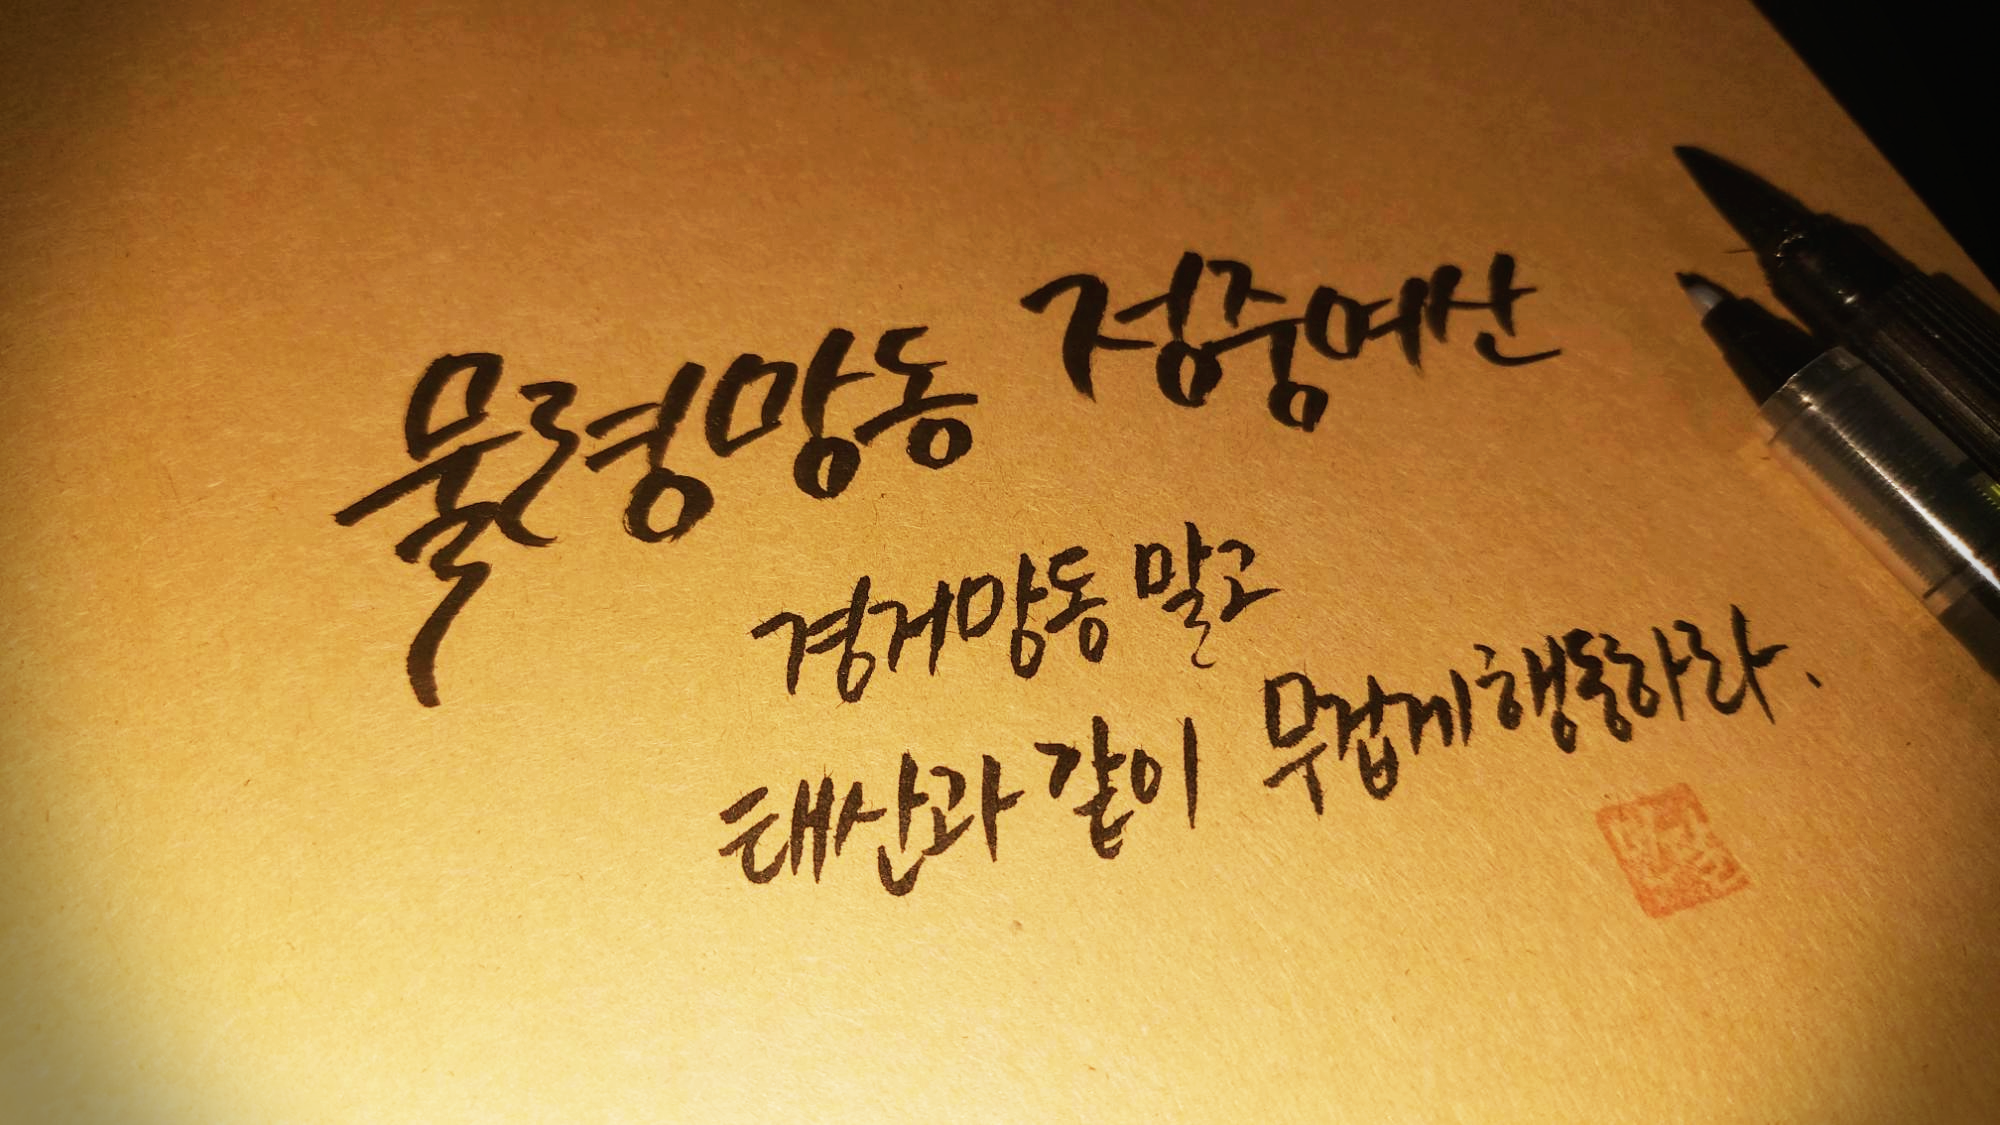 물령망동 정중여산
경거망동 말고
태산과 같이 무겁게 행동하라.